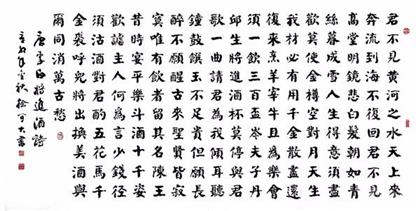 君不見黃河之水天上來
奔流到海不復回君不見
高堂明鏡悲白髮朝如青
絲暮成雪人生得意須盡
歡莫使金樽空對月天生
我材必有用千金散盡還
復來烹羊宰牛且為樂會
須一飲三百盃岑夫子丹
邱生將進酒杯莫停與君
歌一曲請君為我傾耳聽
鐘鼓饌玉不足貴但願長
醉不願醒古來聖賢皆寂
寞唯有飲者留其名陳王
昔時宴平樂斗酒十千恣
歡謔主人何為言少錢徑
須沽酒對君酌五花馬千
金裘呼兒將出換美酒與
爾同消萬古愁
唐李白將進酒詩